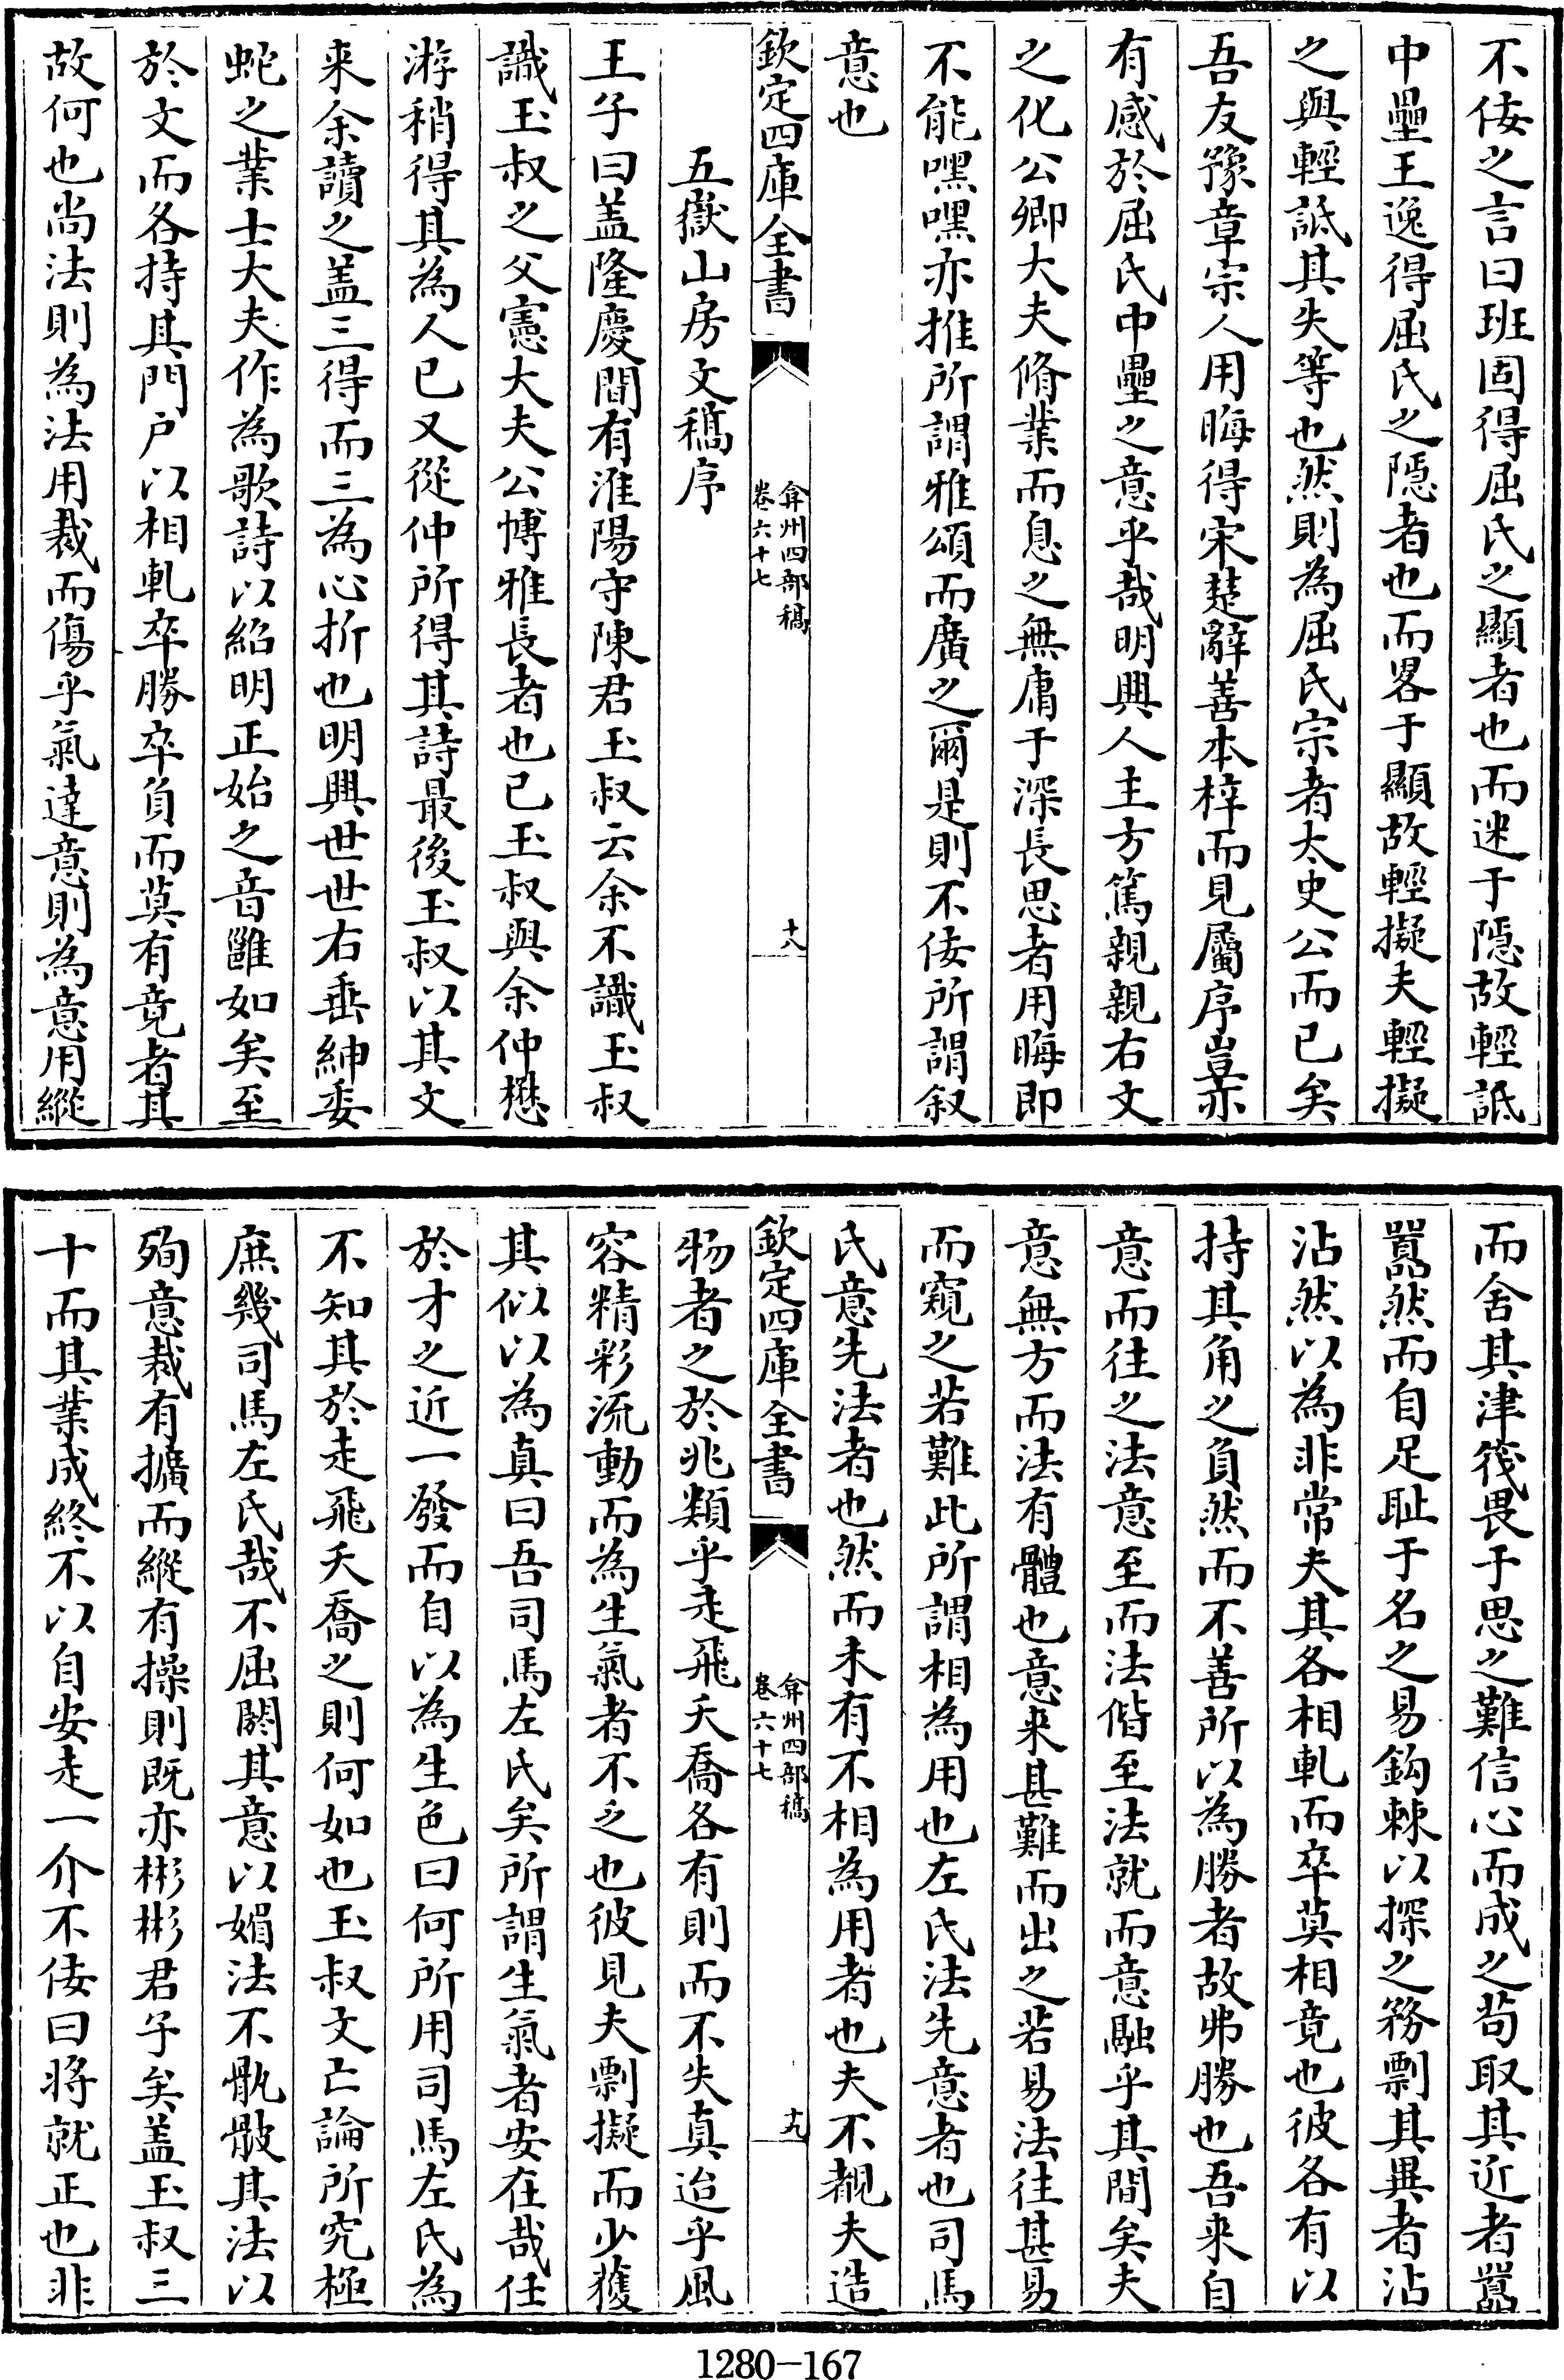 不佞之言曰班固得屈氏之顯者也而迷于隱故輕詆
中壘王逸得屈氏之隱者也而畧于顯故輕擬夫輕擬
之與輕詆其失等也然則為屈氏宗者太史公而已矣
吾友豫章宗人用晦得宋楚辭善本梓而見屬序豈亦
有感於屈氏中壘之意乎哉明興人主方篤親親右文
之化公卿大夫脩業而息之無庸于深長思者用晦即
不能嘿嘿亦推所謂雅頌而廣之爾是則不佞所謂叙
意也
欽定四庫全書
弇州四部稿
卷六十七
十八
五嶽山房文稿序
王子曰盖隆慶間有淮陽守陳君玉叔云余不識玉叔
識玉叔之父憲大夫公博雅長者也已玉叔與余仲懋
游稍得其為人已又從仲所得其詩最後玉叔以其文
来余讀之盖三得而三為心折也明興世世右垂紳委
蛇之業士大夫作為歌詩以紹明正始之音雖如矣至
於文而各持其門户以相軋卒勝卒負而莫有竟者其
故何也尚法則為法用裁而傷乎氣達意則為意用縱
而舍其津筏畏于思之難信心而成之苟取其近者囂
囂然而自足耻于名之易鈎棘以探之務剽其異者沾
沾然以為非常夫其各相軋而卒莫相竟也彼各有以
持其角之負然而不善所以為勝者故弗勝也吾来自
意而往之法意至而法偕至法就而意融乎其間矣夫
意無方而法有體也意来甚難而出之若易法往甚易
而窺之若難此所謂相為用也左氏法先意者也司馬
氏意先法者也然而未有不相為用者也夫不覩夫造
欽定四庫全書
弇州四部稿
卷六十七
十九
物者之於兆類乎走飛夭喬各有則而不失真迨乎風
容精彩流動而為生氣者不乏也彼見夫剽擬而少獲
其似以為真曰吾司馬左氏矣所謂生氣者安在哉任
於才之近一發而自以為生色曰何所用司馬左氏為
不知其於走飛夭喬之則何如也玉叔文亡論所究極
庶幾司馬左氏哉不屈閼其意以媚法不骫骳其法以
殉意裁有擴而縱有操則既亦彬彬君子矣盖玉叔三
十而其業成終不以自安走一介不佞曰将就正也非
1280-167